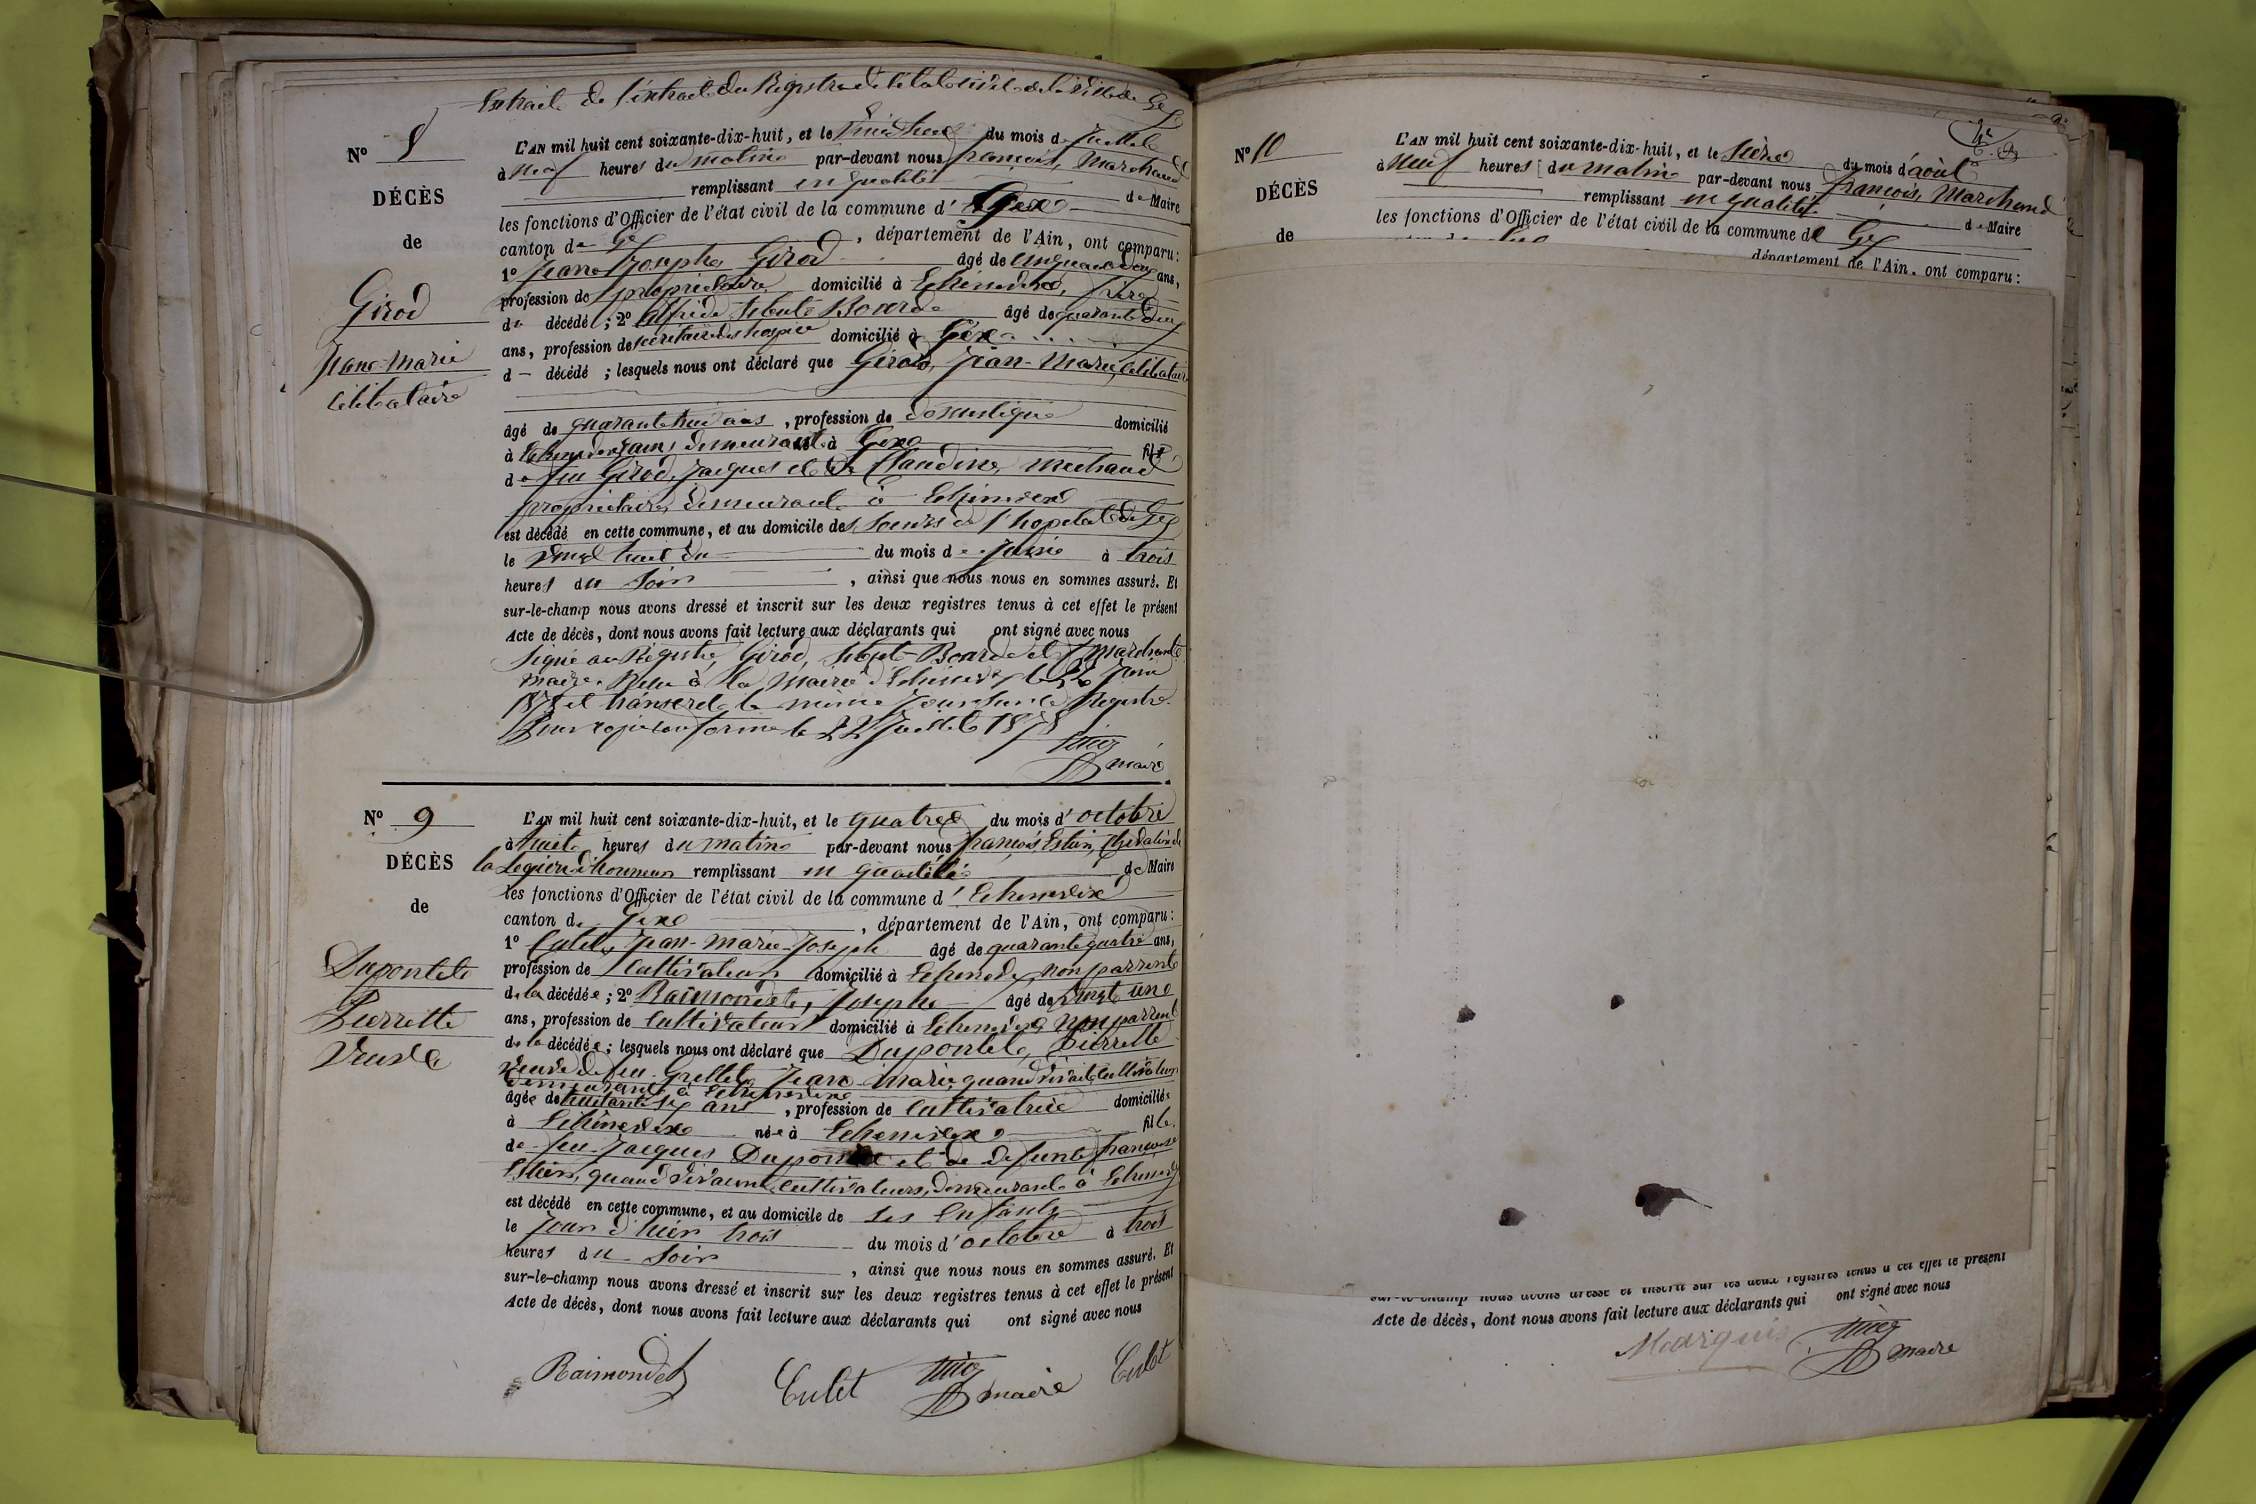 Extrait de l'extrait du Registre de l'état civil de la ville de Gex
N° 8
DÉCÈS
de
Girod
Jean-Marie
célibataire
L'AN mil huit cent soixante-dix-huit, et le vingt huit du mois de
à neuf heures du matin par-devant nous François, Marchand
remplissant en qualité de Maire
les fonctions d'Officier de l'état civil de la commune d' Gex
canton de Gex, département de l'Ain, ont comparu:
1° Jean Joseph Girod âgé de cinquante deux ans,
profession de propriétaire domicilié à Echenevex, frère
du décédé; 2° Alfred Bourde âgé de quarante deux
ans, profession de secrétaire des hospices domicilié à Gex
d décédé; lesquels nous ont déclaré que Girod, Jean-Marie, célibataire
âgé de quarante huit ans, profession de domestique domicilié
à demeurant à Gex fils
de feu Girod, Jacques et de Claudine Mechaud
propriétaire, demeurant à Echenevex
est décédé en cette commune, et au domicile des Soeurs de l'hopital de Gex
le vingt huit du du mois de Juin à trois
heures du soir, ainsi que nous nous en sommes assuré. Et
sur-le-champ nous avons dressé et inscrit sur les deux registres tenus à cet effet le présent
Acte de décès, dont nous avons fait lecture aux déclarants qui ont signé avec nous
Signé au Registre, Girod, Bourde et Marchand
maire. Reçu à la Mairie d'Echenevex le 30 Juin
1878 et transcrit le même jour sur le Registre.
Pour copie conforme le 22 Juillet 1878
maire
N° 9
DÉCÈS
de
Dupontet
Pierrette
Veuve
L'AN mil huit cent soixante-dix-huit, et le quatre du mois d'octobre
à huit heures du matin par-devant nous François Estier, Chevalier de
la Légion d'honneur remplissant en qualité de Maire
les fonctions d'Officier de l'état civil de la commune d'Echenevex
canton de Gex, département de l'Ain, ont comparu:
1° Culet, Jean-Marie-Joseph âgé de quarante quatre ans,
profession de Cultivateur domicilié à Echenevex non parrent
de la décédée; 2° Raimondet, Joseph âgé de vingt un
ans, profession de Cultivateur domicilié à Echenevex non parrent
de la décédée; lesquels nous ont déclaré que Dupontet, Pierrette
veuve de feu Grellet, Jean-Marie, quand vivait cultivateur
demeurant à Echenevex
âgée de six ans, profession de Cultivatrice domiciliée
à Echenevex née à Echenevex fille
de feu Jacques Dupontet et de défunte Françoise
Estier, quand vivaient cultivateurs, demeurant à Echenevex
est décédé en cette commune, et au domicile de ses enfants
le jour d'hier trois du mois d'octobre à trois
heures du soir, ainsi que nous nous en sommes assuré. Et
sur-le-champ nous avons dressé et inscrit sur les deux registres tenus à cet effet le présent
Acte de décès, dont nous avons fait lecture aux déclarants qui ont signé avec nous
Raimondet Culet maire Culet
N° 10
DÉCÈS
de
L'AN mil huit cent soixante-dix-huit, et le seize du mois d'août
à neuf heures du matin par-devant nous François, Marchand
remplissant en qualité de Maire
les fonctions d'Officier de l'état civil de la commune de Gex
département de l'Ain, ont comparu:
sur-le-champ nous avons dressé et inscrit sur les deux registres tenus à cet effet le présent
Acte de décès, dont nous avons fait lecture aux déclarants qui ont signé avec nous
Marquis
maire